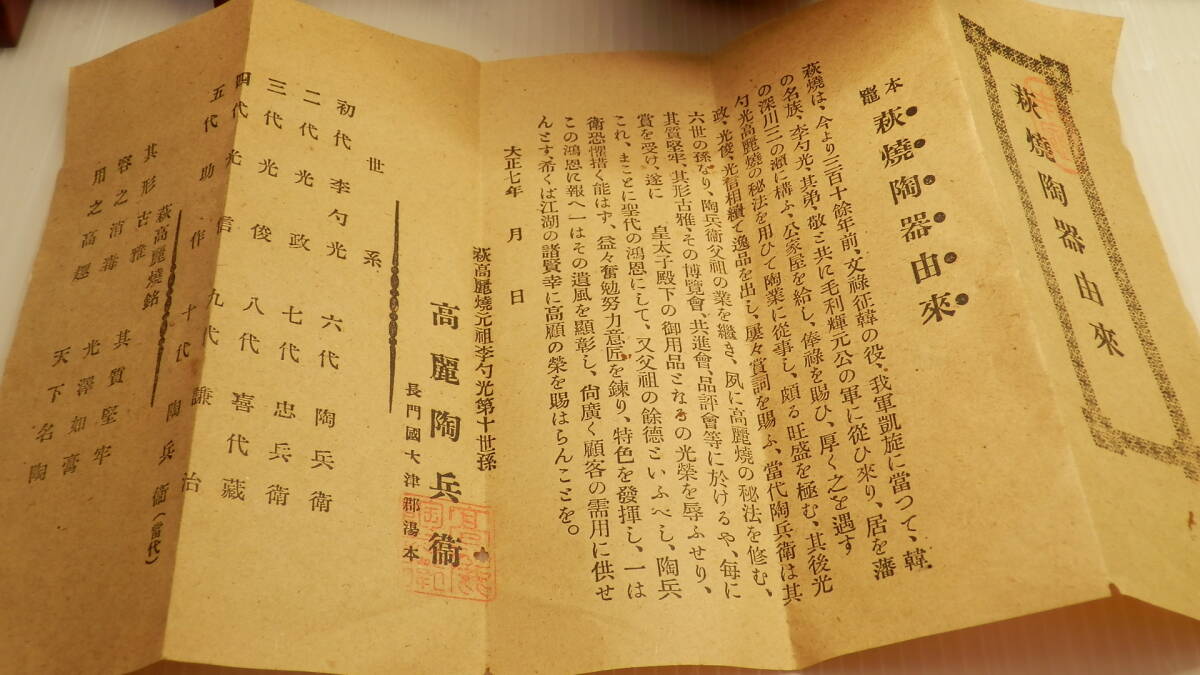 萩燒陶器由來
本竈 萩燒陶器由來
萩燒は、今より三百十餘年前、文祿征韓の役、我軍凱旋に當つて、韓
の名族、李勺光、其弟、敬と共に毛利輝元公の軍に從ひ來り、居を藩
の深川三の瀬に構ふ、公家屋を給し、俸祿を賜ひ、厚く之を遇す
勺光高麗燒の秘法を用ひて陶業に從事し、頗る旺盛を極む、其後光
政、光俊、光信相續て逸品を出し、屢々賞詞を賜ふ、當代陶兵衛は其
六世の孫なり、陶兵衛父祖の業を繼き、夙に高麗燒の秘法を修む、
其質堅牢、其形古雅、その博覽會、共進會、品評會等に於けるや、每に
賞を受け、遂に 皇太子殿下の御用品となるの光榮を辱ふせり、
これ、まことに聖代の鴻恩にして、又父祖の餘德といふべし、陶兵
衛恐懼措く能はず、益々奮勉努力意匠を鍊り、特色を發揮し、一は
この鴻恩に報へ一はその遺風を顯彰し、尙廣く顧客の需用に供せ
んとす、希くば江湖の諸賢幸に高顧の榮を賜はらんことを。
大正七年 月 日
萩高麗燒元祖李勺光第十世孫
高麗陶兵衞
長門國大津郡湯本
世系
初代 李勺光 六代 陶兵衛
二代 光政 七代 忠兵衛
三代 光俊 八代 喜代藏
四代 光信 九代 謙治
五代 助作 十代 陶兵衞(當代)
萩高麗燒銘
其形古雅 其質堅牢
容之消毒 光澤如膏
用之高趣 天下名陶